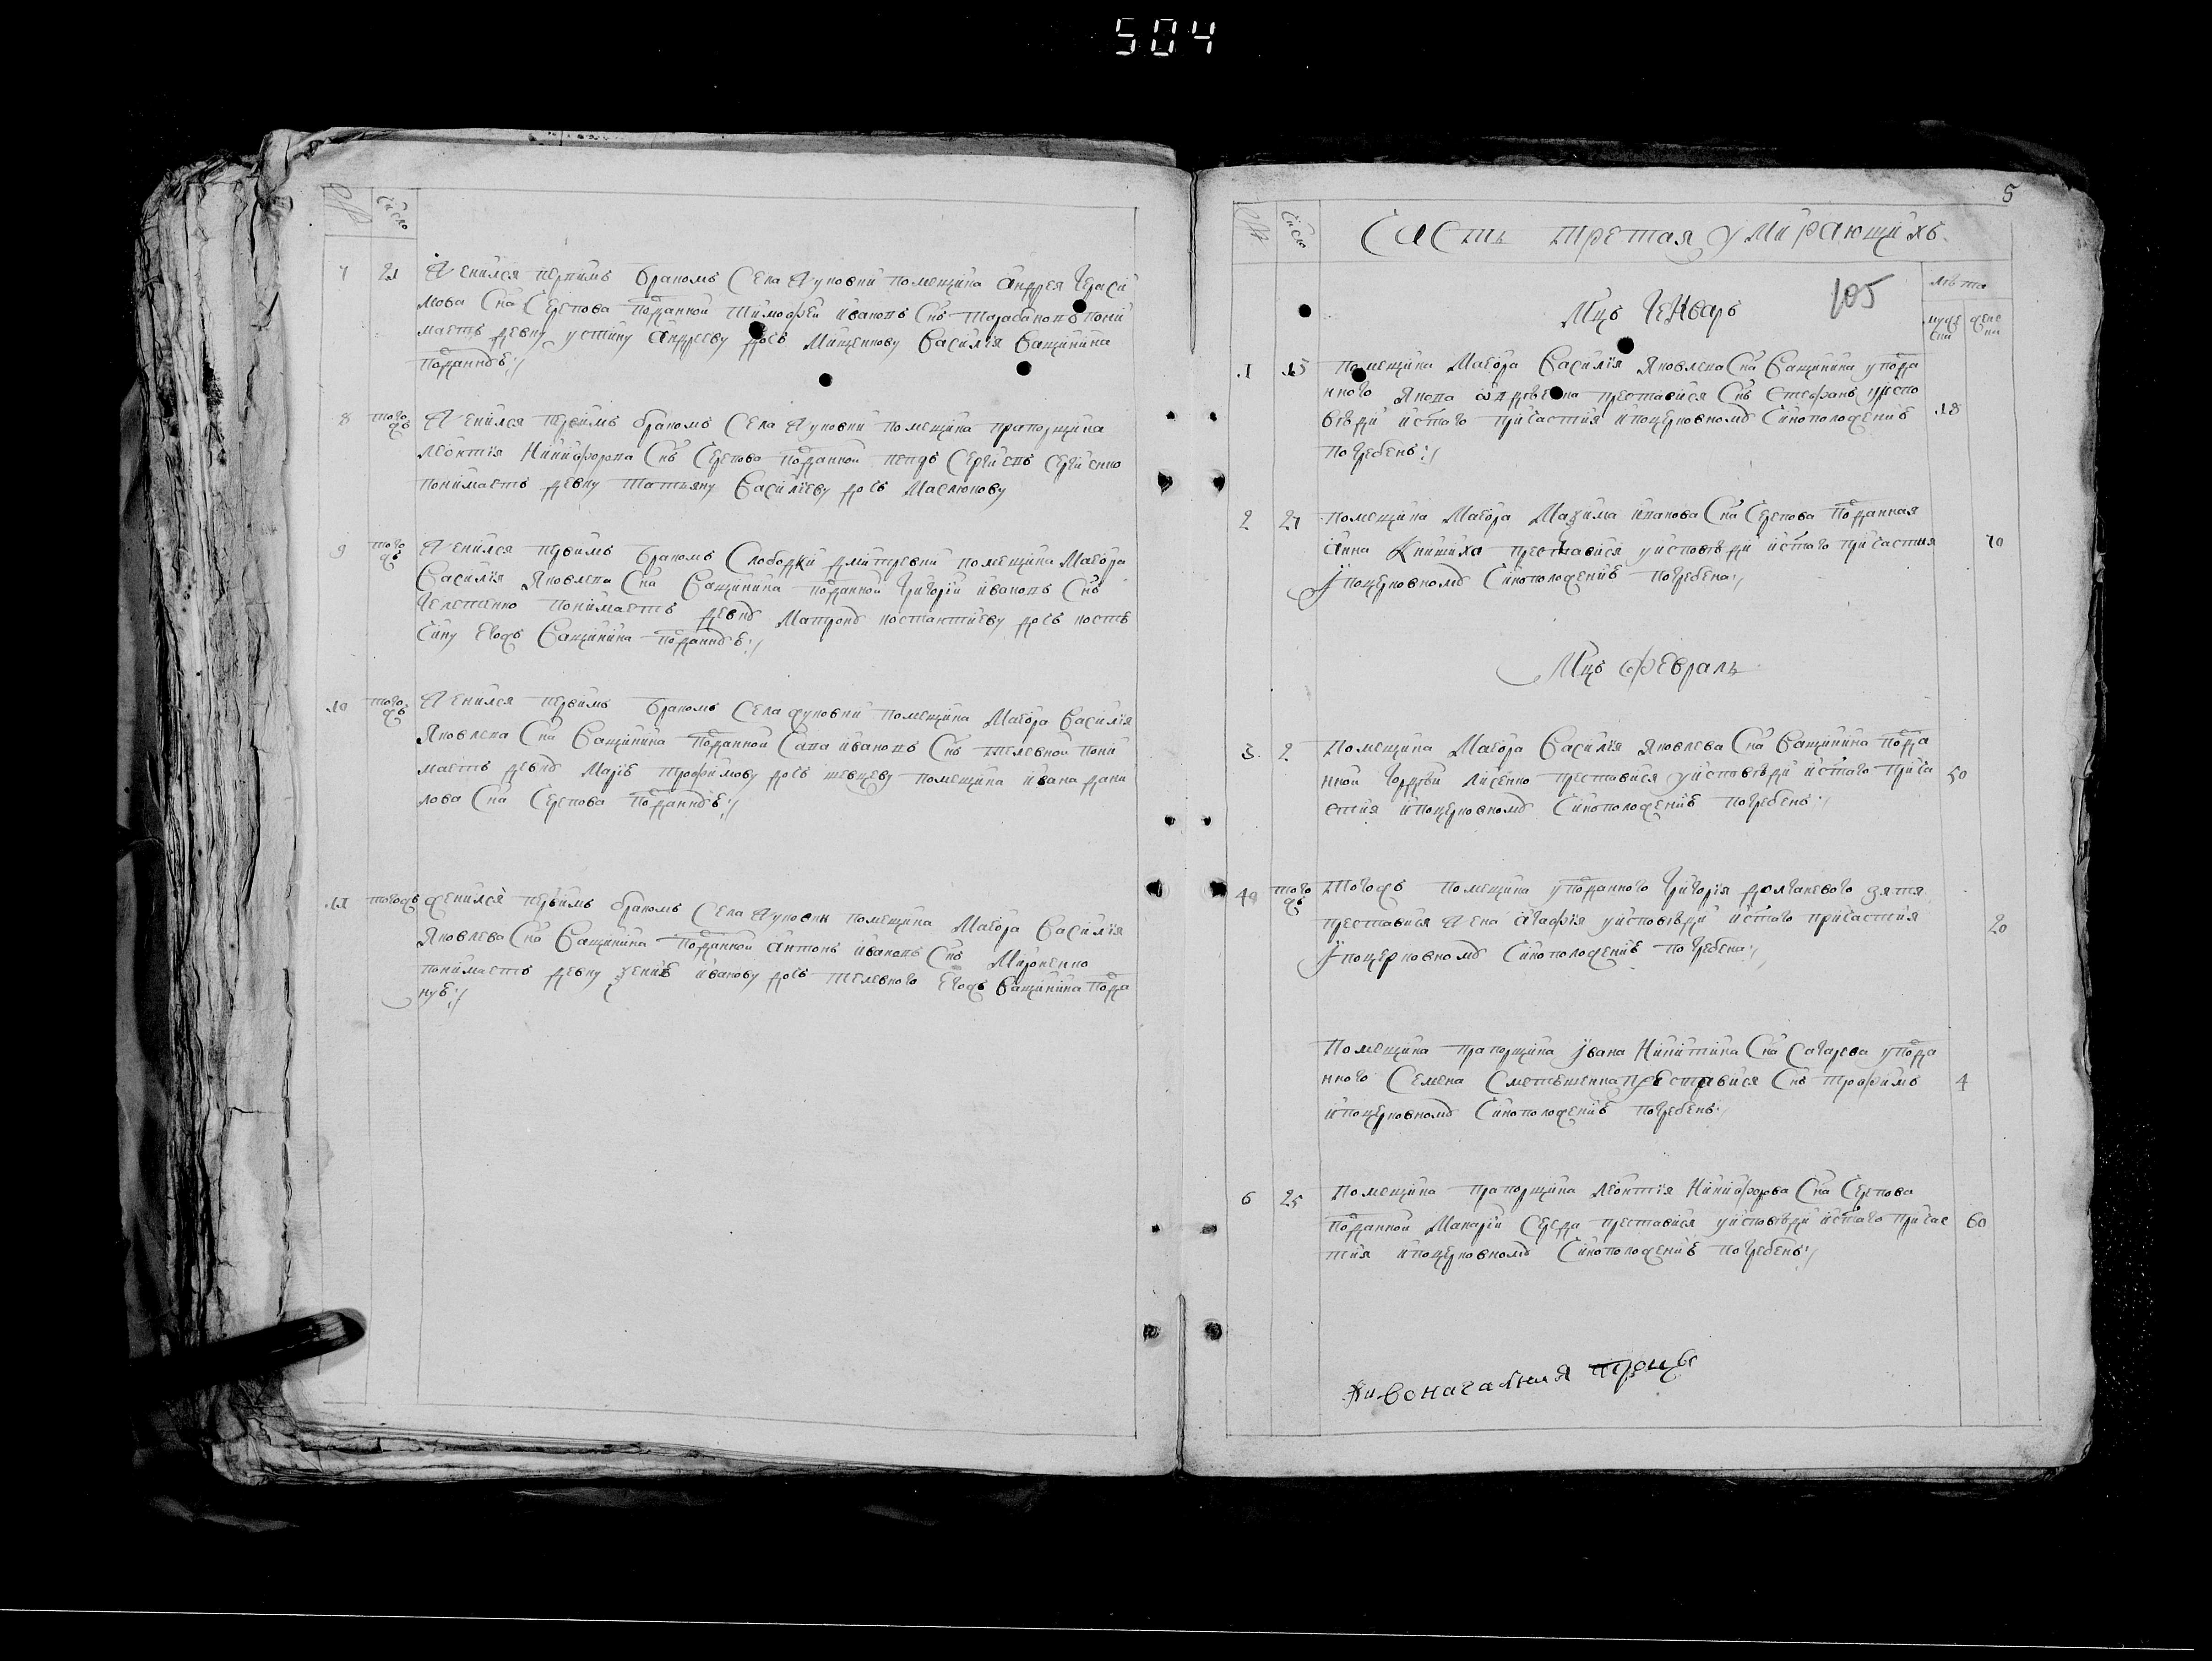 504
№ Число
7 21 Женился первимъ бракомъ Села Жуковки помещика Андрея Гераси
мова Сна Серкова подданной Тимофей Ивановъ Снъ Тарабановъ пони
маетъ девку устину Андрееву дочь Мищенкову Василия Ващинина
подданнꙋю
8 тогожъ Женился первимъ бракомъ Села Жуковки помещика прапорщика
Леонтїя Никифорова Снъ Серкова подданной Сергиенко
понимаетъ девку Татьяну Василїеву дочь Маслюкову
9 тогожъ Женился первимъ бракомъ Слободки Дмитревки помещика Маѣора
Василїя Яковлева Сна Ващинина подданной Григорїй Ивановъ Снъ
понимаетъ девкꙋ Матронꙋ костантїеву дочь
Егожъ Ващинина подданнꙋю
10 тогожъ Женился первимъ бракомъ Села Жуковки помещика Маѣора Василїя
Яковлева Сна Ващинина подданной Сава Ивановъ Снъ Тележной пони
маетъ девкꙋ Марїю трофимову дочь шевцеву помещика ивана дани
лова Сна Серкова подданнꙋю
11 тогожъ Женился первимъ бракомъ Села Жуковки помещика Маѣора Василїя
Яковлева Сна Ващинина подданной Антонъ Ивановъ Снъ Мироненко
понимаетъ девку Ѯению иванову дочь тележного Егожъ Ващинина подда
ную
5
№ Число
Часть третая умирающихъ
105
лѣта
муже
ски
жес
ки
Мцъ Генварь
1 15 Помещика Маѣора Василїя Яковлева Сна Ващинина у подда
нного Якова преставися Снъ Стефанъ уиспо
вѣди истаго причастия ипоцерковномꙋ Чиноположению 18
погребенъ
2 27 Помещика Маѣора Маѯима иванова Сна Серкова подданная
Анна преставися уисповѣди истаго причастия 70
Ипоцерковномꙋ Чиноположению погребена
Мцъ Февраль
3 2 Помещика Маѣора Василїя Яковлева Сна Ващинина подда
нной Гордѣй Лисенко преставися уисповѣди истаго прича 50
стия ипоцерковномꙋ Чиноположению погребенъ
4 тогожъ Тогожъ помещика у подданного Григорїя зятя
преставися Жена Агафїя уисповѣди истаго причастия 20
Ипоцерковномꙋ Чиноположению погребена
Помещика прапорщика Ивана Никитина Сна Сахарова у подда
нного Семена преставися Снъ трофимъ 4
ипоцерковномꙋ Чиноположению погребенъ
6 25 Помещика прапорщика Леонтїя Никифорова Сна Серкова
подданной Макарїй Середа преставися уисповѣди истаго причас 60
тия ипоцерковномꙋ Чиноположению погребенъ
Живоначалния Троицы